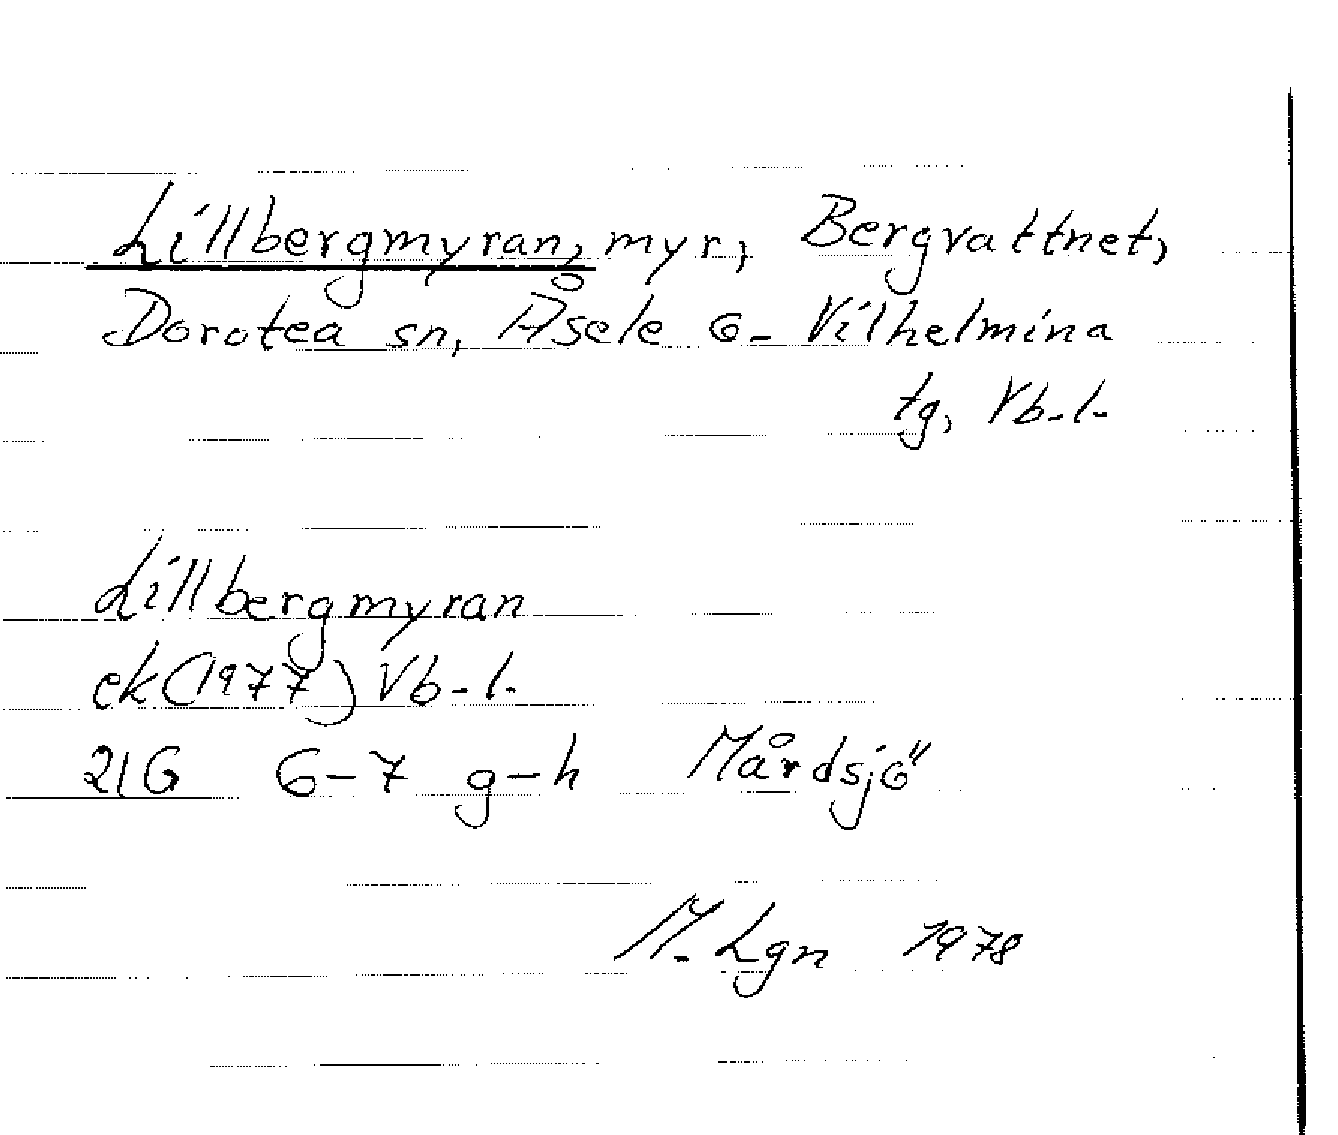 Lillbergmyran, myr, Bergvattnet,
Dorotea sn, Åsele o- Vilhelmina
tg, Vb-l.
Lillbergmyran
ek (1977) Vb-l.
21G 6-7 g-h Mårdsjö
M. Lgn 1978